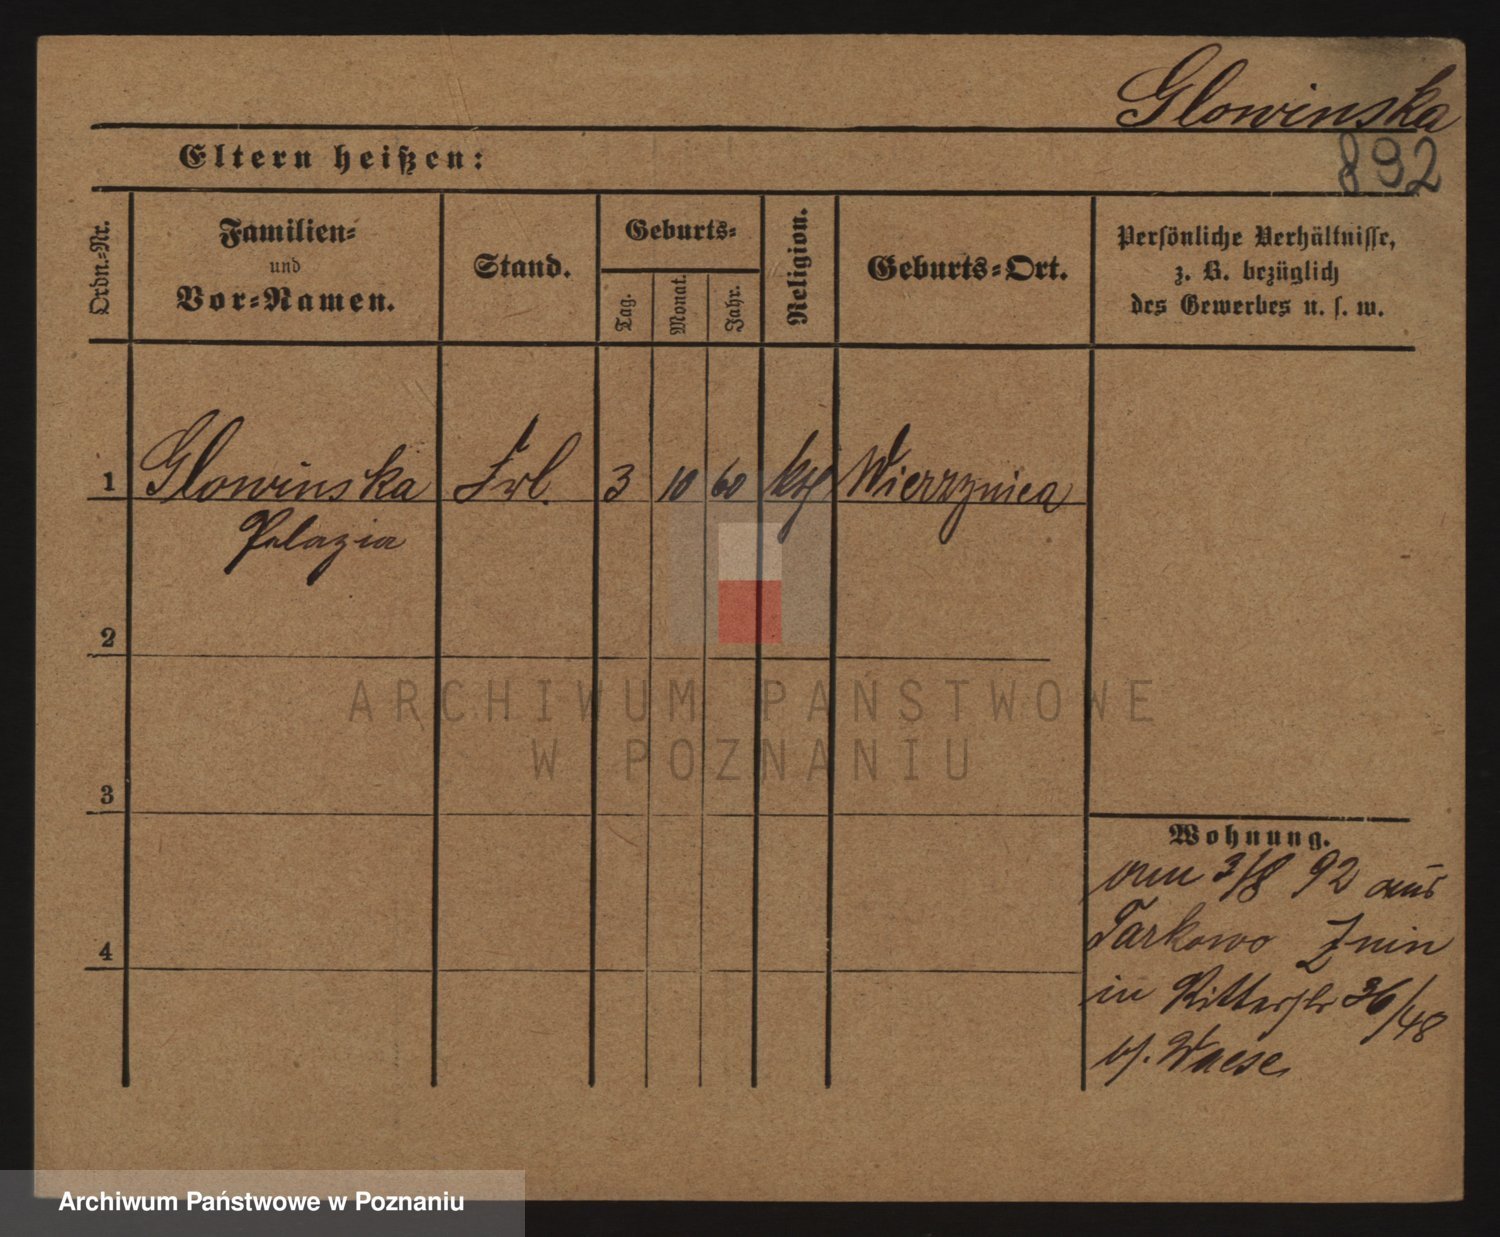 Glowinska
892
Eltern heißen:
Ordn.-Nr.
Familien-
und
Vor-Namen.
Stand.
Geburts-
Tag.
Monat.
Jahr.
Religion.
Geburts-Ort.
Persönliche Verhältnisse,
z. B. bezüglich
des Gewerbes u. s. w.
1 Glowinska Frl. 3 10 60 kth Wierzynica
Pelazia
2
3
4
Wohnung.
am 3/8 92 aus
Tarkowo Znin
in Ritterstr 36/48
b/. Waese
ARCHIWUM PAŃSTWOWE
W POZNANIU
Archiwum Państwowe w Poznaniu